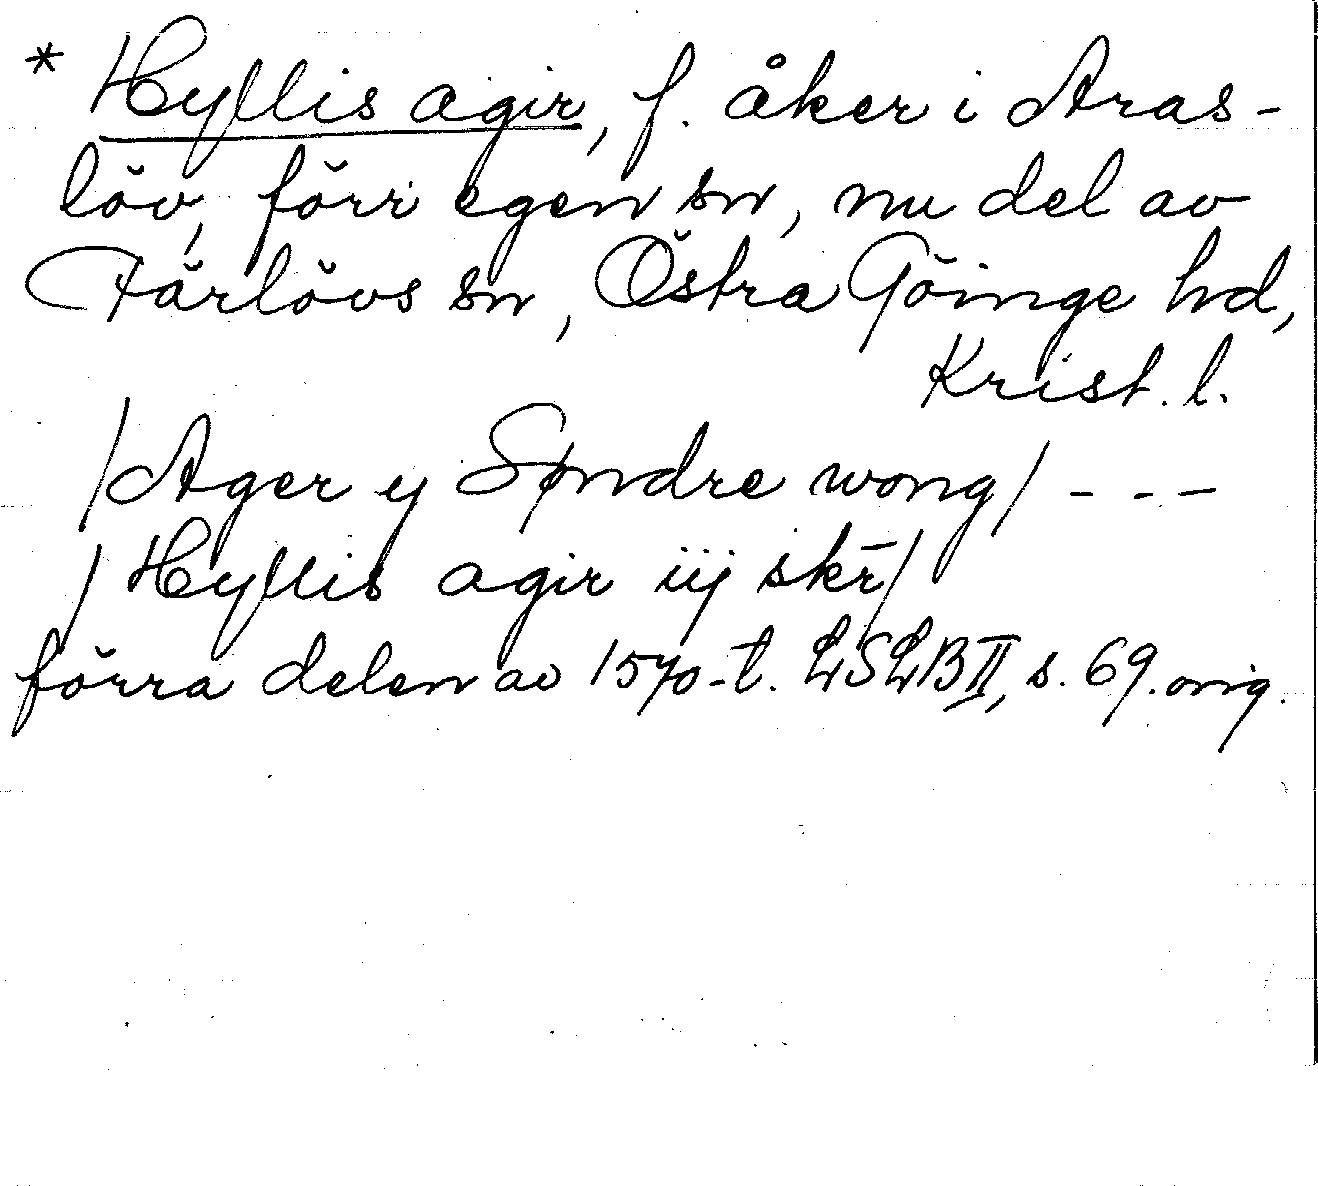 * Hyllis agir, f. åker i Aras-
löv, förr egen sn, nu del av
Färlövs sn, Östra Göinge hd,
Krist. l.
/Ager y Søndre wong/ - - -
/Hyllis agir iij skr̄/
förra delen av 1570-t. LSLB II, s. 69. orig.